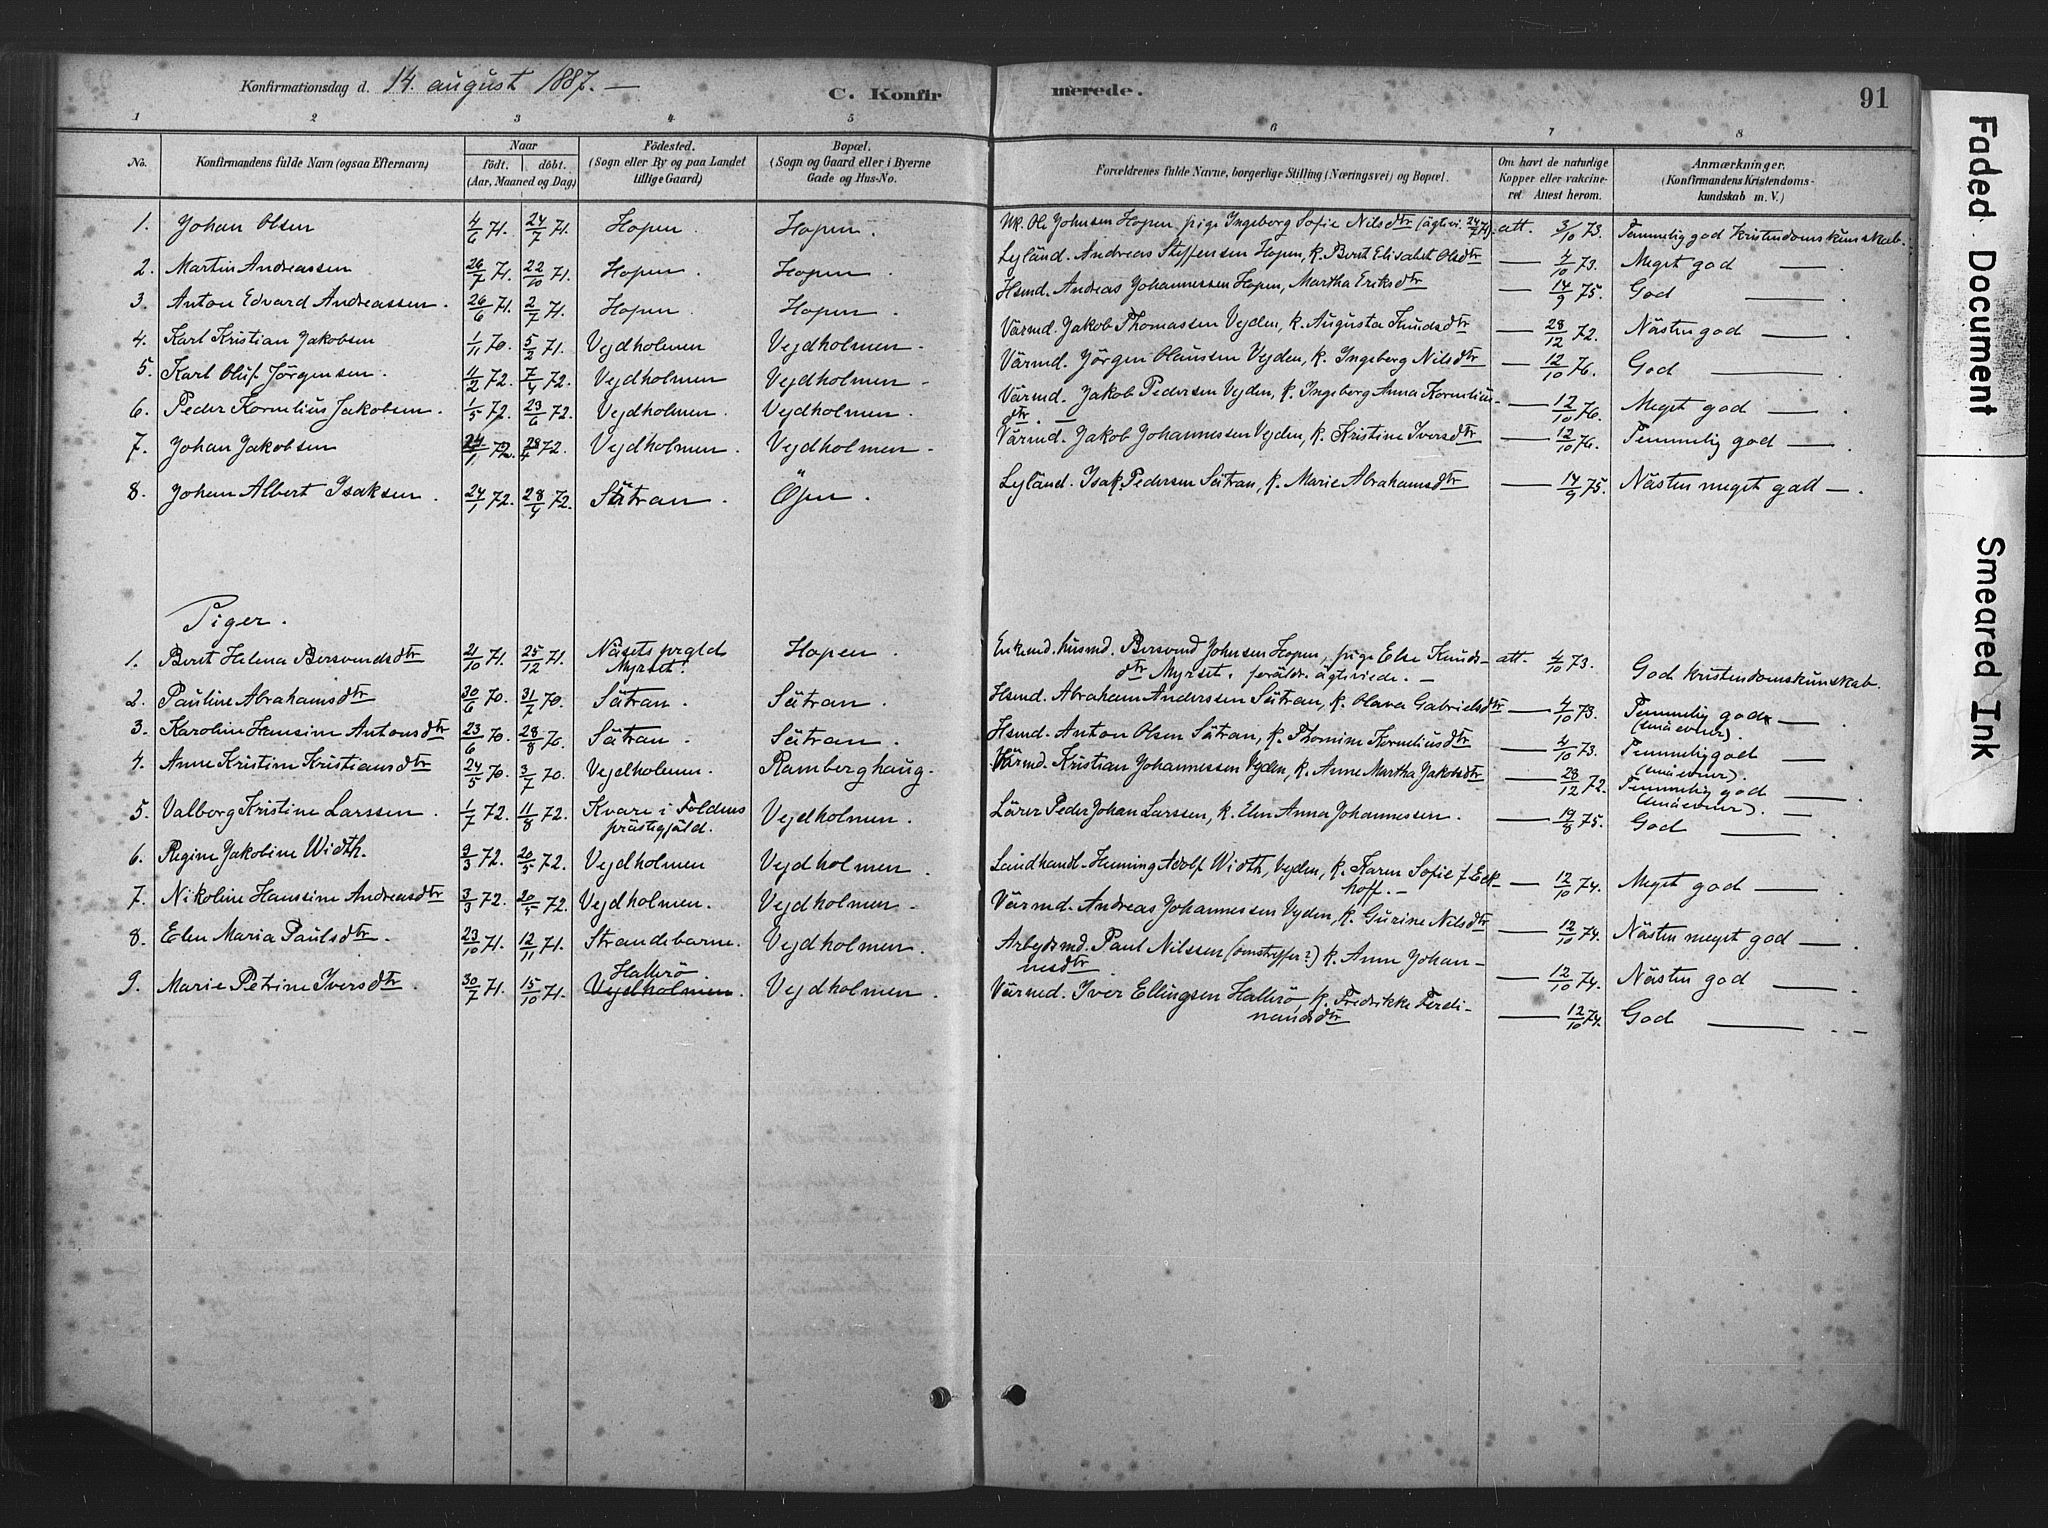 Konfirmationsdag d. 14. august 1887. —
C. Konfirmerede.
91
1 2 3 4 5 6 7 8
No. Konfirmandens fulde Navn (ogsaa Efternavn) Naar födt. döbt. (Aar, Maaned og Dag) Födested. (Sogn eller By og paa Landet tillige Gaard) Bopæl. (Sogn og Gaard eller i Byerne Gade og Hus-No. Forældrenes fulde Navne, borgerlige Stilling (Næringsvei) og Bopæl. Om havt de naturlige Kopper eller vakcineret Attest herom. Anmærkninger. (Konfirmandens Kristendomskundskab m. V.)
1. Johan Olsen 4/6 71. 24/7 71. Hopen. Hopen. Uk. Ole Johnsen Hopen, pige Ingeborg Sofie Nilsdtr (ägtevi. 24/7 71). att. 3/10 73. Temmelig god Kristendomskunskab.
2. Martin Andreassen 26/7 71. 22/10 71. Hopen. Hopen. Leyländ. Andreas Steffensen Hopen, k. Berit Elisabet Olsdtr — 4/10 73. Meget god — .
3. Anton Edvard Andreassen. 26/6 71. 2/7 71. Hopen. Hopen. Hsmd. Andreas Johannessen Hopen, Martha Eriksdtr — 14/9 75. God — .
4. Karl Kristian Jakobsen 1/11 70. 5/2 71. Vejdholmen Vejdholmen. Värmd. Jakob Thomassen Vejden, k. Augusta Knudsdtr — 28/12 72. Nästen god — .
5. Karl Oluf Jörgensen. 11/2 72. 7/4 72. Vejdholmen Vejdholmen. Värmd. Jörgen Olaussen Vejden, k. Ingeborg Nilsdtr — 12/10 76. God — .
6. Peder Kornelius Jakobsen. 1/5 72. 23/6 72. Vejdholmen. Vejdholmen. Värmd. Jakob Pedersen Vejden, k. Ingeborg Anna Kornelius-
dtr. — — 12/10 76. Meget god — .
7. Johan Jakobsen 24/1 72. 28/4 72. Vejdholmen. Vejdholmen. Värmd. Jakob Johannessen Vejden, k. Kristine Iversdtr — 12/10 76. Temmelig god —
8. Johan Albert Isaksen. 24/1 72. 28/4 72. Sätran. Öjen. Leyländ. Isak Pedersen Sätran, k. Marie Abrahamsdtr — 14/9 75. Nästen meget godt — .
Piger.
1. Berit Helena Bersvendsdtr 21/10 71. 25/12 71. Näsets prgld Myrset. Hopen. Enkemd. husmd. Bersvend Johnsen Hopen, pige Else Knuds-
dtr Myrset. foräldr. ägteviede. — att. 4/10 73. God Kristendomskunskab.
2. Pauline Abrahamsdtr 30/6 70. 31/7 70. Sätran. Sätran. Hsmd. Abraham Anderssen Sätran, k. Olava Gabrielsdtr — 4/10 73. Temmelig god — .
(små evner).
3. Karoline Hansine Antonsdtr 23/6 70. 28/8 70. Sätran. Sätran. Hsmd. Anton Olsen Sätran, k. Thomine Korneliusdtr — 4/10 73. Temmelig god —
(små evner).
4. Anne Kristine Kristiansdtr 24/5 70. 3/7 70. Vejdholmen. Ramberghaug. Värmd. Kristian Johannessen Vejden, k. Anne Martha Jakobsdtr — 28/12 72. Temmelig god — .
(små evner). —
5. Valborg Kristine Larssen. 1/7 72. 11/8 72. Kvare i Foldens prästegjäld. Vejdholmen. Lärer Peder Johan Larssen, k. Elen Anna Johannessen. — 19/8 75. God — .
6. Regine Jakobine Width. 9/3 72. 20/5 72. Vejdholmen Vejdholmen. Landhandl. Henning Adolf Width, Vejden, k. Karen Sofie f. Eck-
hoff. — — 12/10 74. Meget god — .
7. Nikoline Hanssine Andreasdtr 3/3 72. 20/5 72. Vejdholmen. Vejdholmen. Värmd. Andreas Johannessen Vejden, k. Gurine Nilsdtr — 12/10 74. Nästen meget god — .
8. Elen Maria Paulsdtr. 23/10 71. 12/11 71. Strandebarne. Vejdholmen. Arbejdsmd. Paul Nilssen (omstreffer?) k. Anne Johan-
nesdtr — 12/10 74. Nästen god — .
9. Marie Petrine Iversdtr. 30/7 71. 15/10 71. Hallerö. Vejdholmen. Vejdholmen. Värmd. Iver Ellingsen Hallerö, k. Fredrikke Ferdi-
nandsdtr — 12/10 74. God — . —
Faded Document Smeared Ink